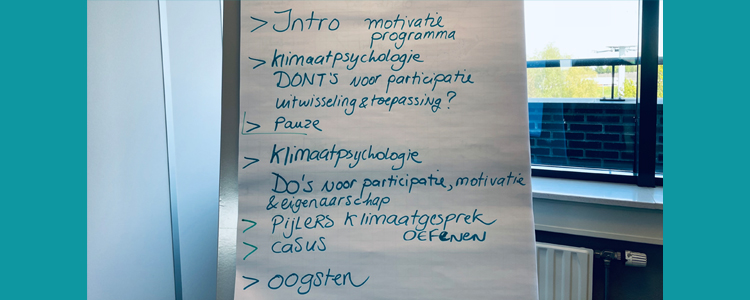 > Intro motivatie
programma
> Klimaatpsychologie
DONT'S voor participatie
uitwisseling & toepassing?
> Pauze
> Klimaatpsychologie
DO'S voor participatie, motivatie
& eigenaarschap
> PIJLERS Klimaatgesprek
> CASUS OEFENEN
> oogsten